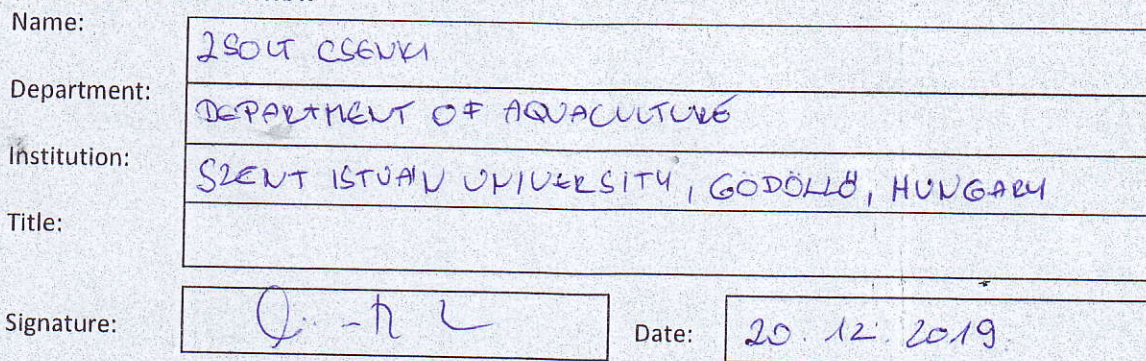 Name: ZSOLT CSENKI
Department: DEPARTMENT OF AQUACULTURE
Institution: SZENT ISTVÁN UNIVERSITY, GÖDÖLLŐ, HUNGARY
Title:
Signature: Date: 20. 12. 2019.